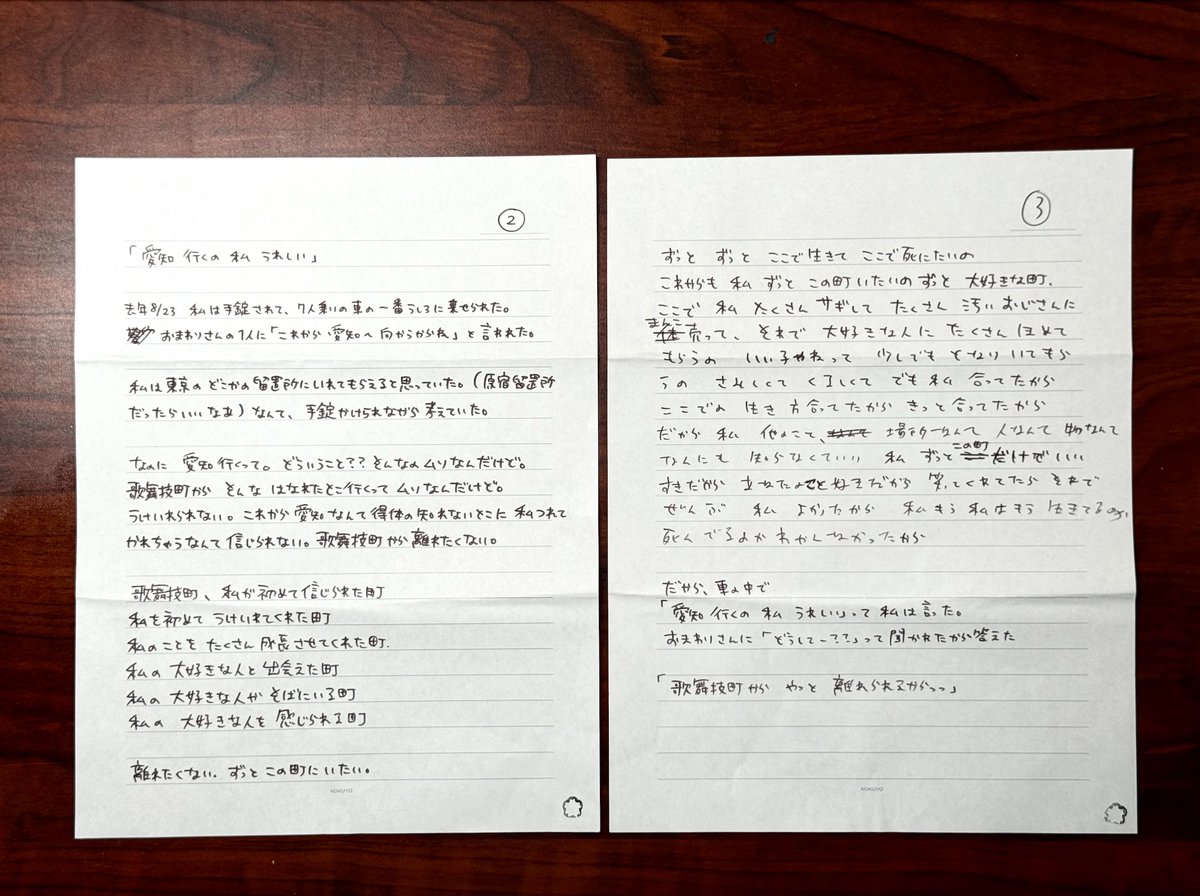 ②
「愛知 行くの 私 うれしい」
去年8/23 私は手錠されて、7人乗りの車の一番うしろに乗せられた。
おまわりさんの1人に「これから 愛知へ 向かうからね」と 言われた。
私は東京の どこかの留置所にいれてもらえると思っていた。(原宿留置所
だったらいいなあ)なんて、手錠かけられながら 考えていた。
なのに 愛知行くって。どういうこと??そんなのムリなんだけど。
歌舞伎町から そんな はなれたとこ行くって ムリなんだけど。
うけいれられない。これから 愛知なんて得体の知れないとこに 私つれて
かれちゃうなんて信じられない。歌舞伎町から離れたくない。
歌舞伎町、私が初めて信じられた町
私を初めて うけいれてくれた町
私のことを たくさん成長させてくれた町.
私の 大好きな人と出会えた町
私の 大好きな人が そばにいる町
私の 大好きな人を 感じられる町
離れたくない. ずっと この町にいたい。
KOKUYO
③
ずっと ずっと ここで生きて ここで死にたいの
これからも 私 ずっと この町いたいの ずっと 大好きな町.
ここで 私 たくさん サギして たくさん 汚いおじさんに
まんこ
売って、それで 大好きな人に たくさん ほめて
もらうの いい子やねって 少しでも となり いてもら
うの さみしくて くるしくて でも私 合ってたから
ここでの 生き方合ってたから きっと合ってたから
だから 私 他のこと、 場所なんて 人なんて 物なんて
なんにも 知らなくていい 私 ずっと この町 だけでいい
すきだから 好きだから 笑ってくれてたら それで
ぜんぶ 私 よかったから 私もう 私はもう 生きてるのか
死んでるのか わかんなかったから
だから、車の中で
「愛知 行くの 私 うれしい」って 私は言った。
おまわりさんに「どうしてー??」って 聞かれたから答えた
「歌舞伎町から やっと 離れられるからっっ」
KOKUYO